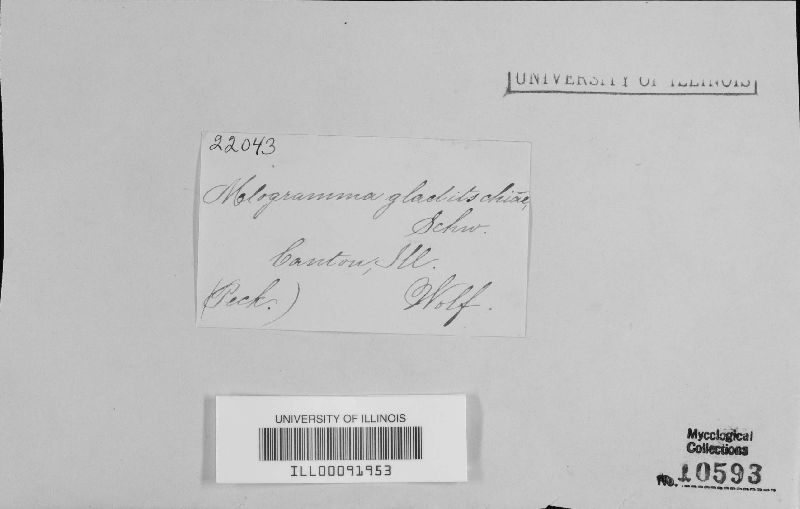 UNIVERSITY OF ILLINOIS
22043
Melogramma gleditschiae,
Schw.
Canton, Ill.
(Peck.) Wolf.
UNIVERSITY OF ILLINOIS
ILL00091953
Mycological
Collections
No. 10593